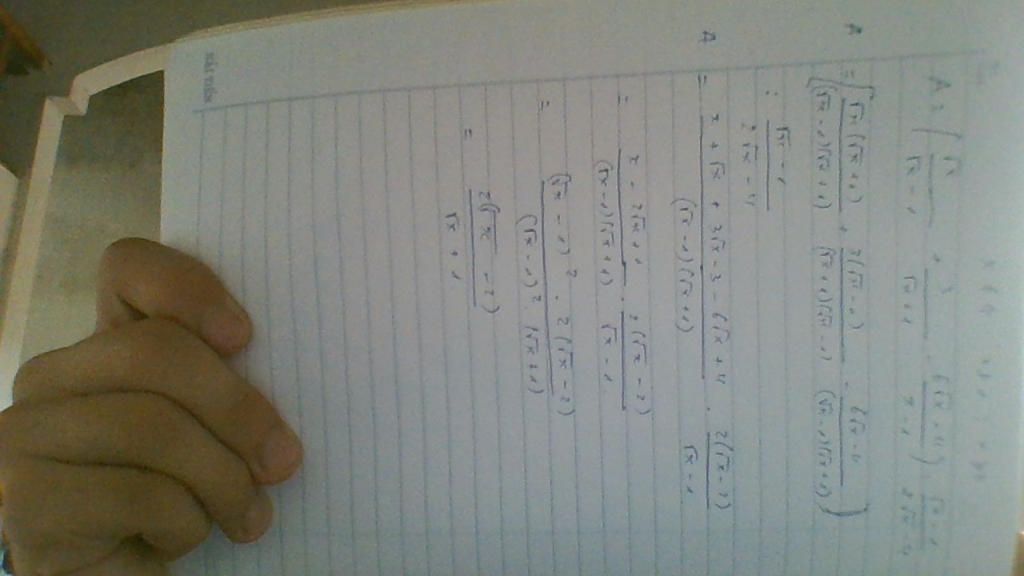 A = ( √x / (√x - 1) + 3 / (√x + 1) - (6√x - 4) / (x - 1) ) : (√x - 1) / (2√x - 4)
A = [ √x(√x+1) / (√x-1)(√x+1) + 3(√x-1) / (√x+1)(√x-1) - (6√x-4) / (√x-1)(√x+1) ]
: (√x - 1) / (2√x - 4)
A = (x + √x + 3√x - 3 - 6√x + 4) / (√x-1)(√x+1) . 2(√x-2) / (√x-1)
= (x - 2√x + 1) / (√x-1)(√x+1) . 2(√x-2) / (√x-1)
= (√x - 1)² . 2(√x-2) / (√x-1)² . (√x+1)
= 2(√x - 2) / (√x + 1)